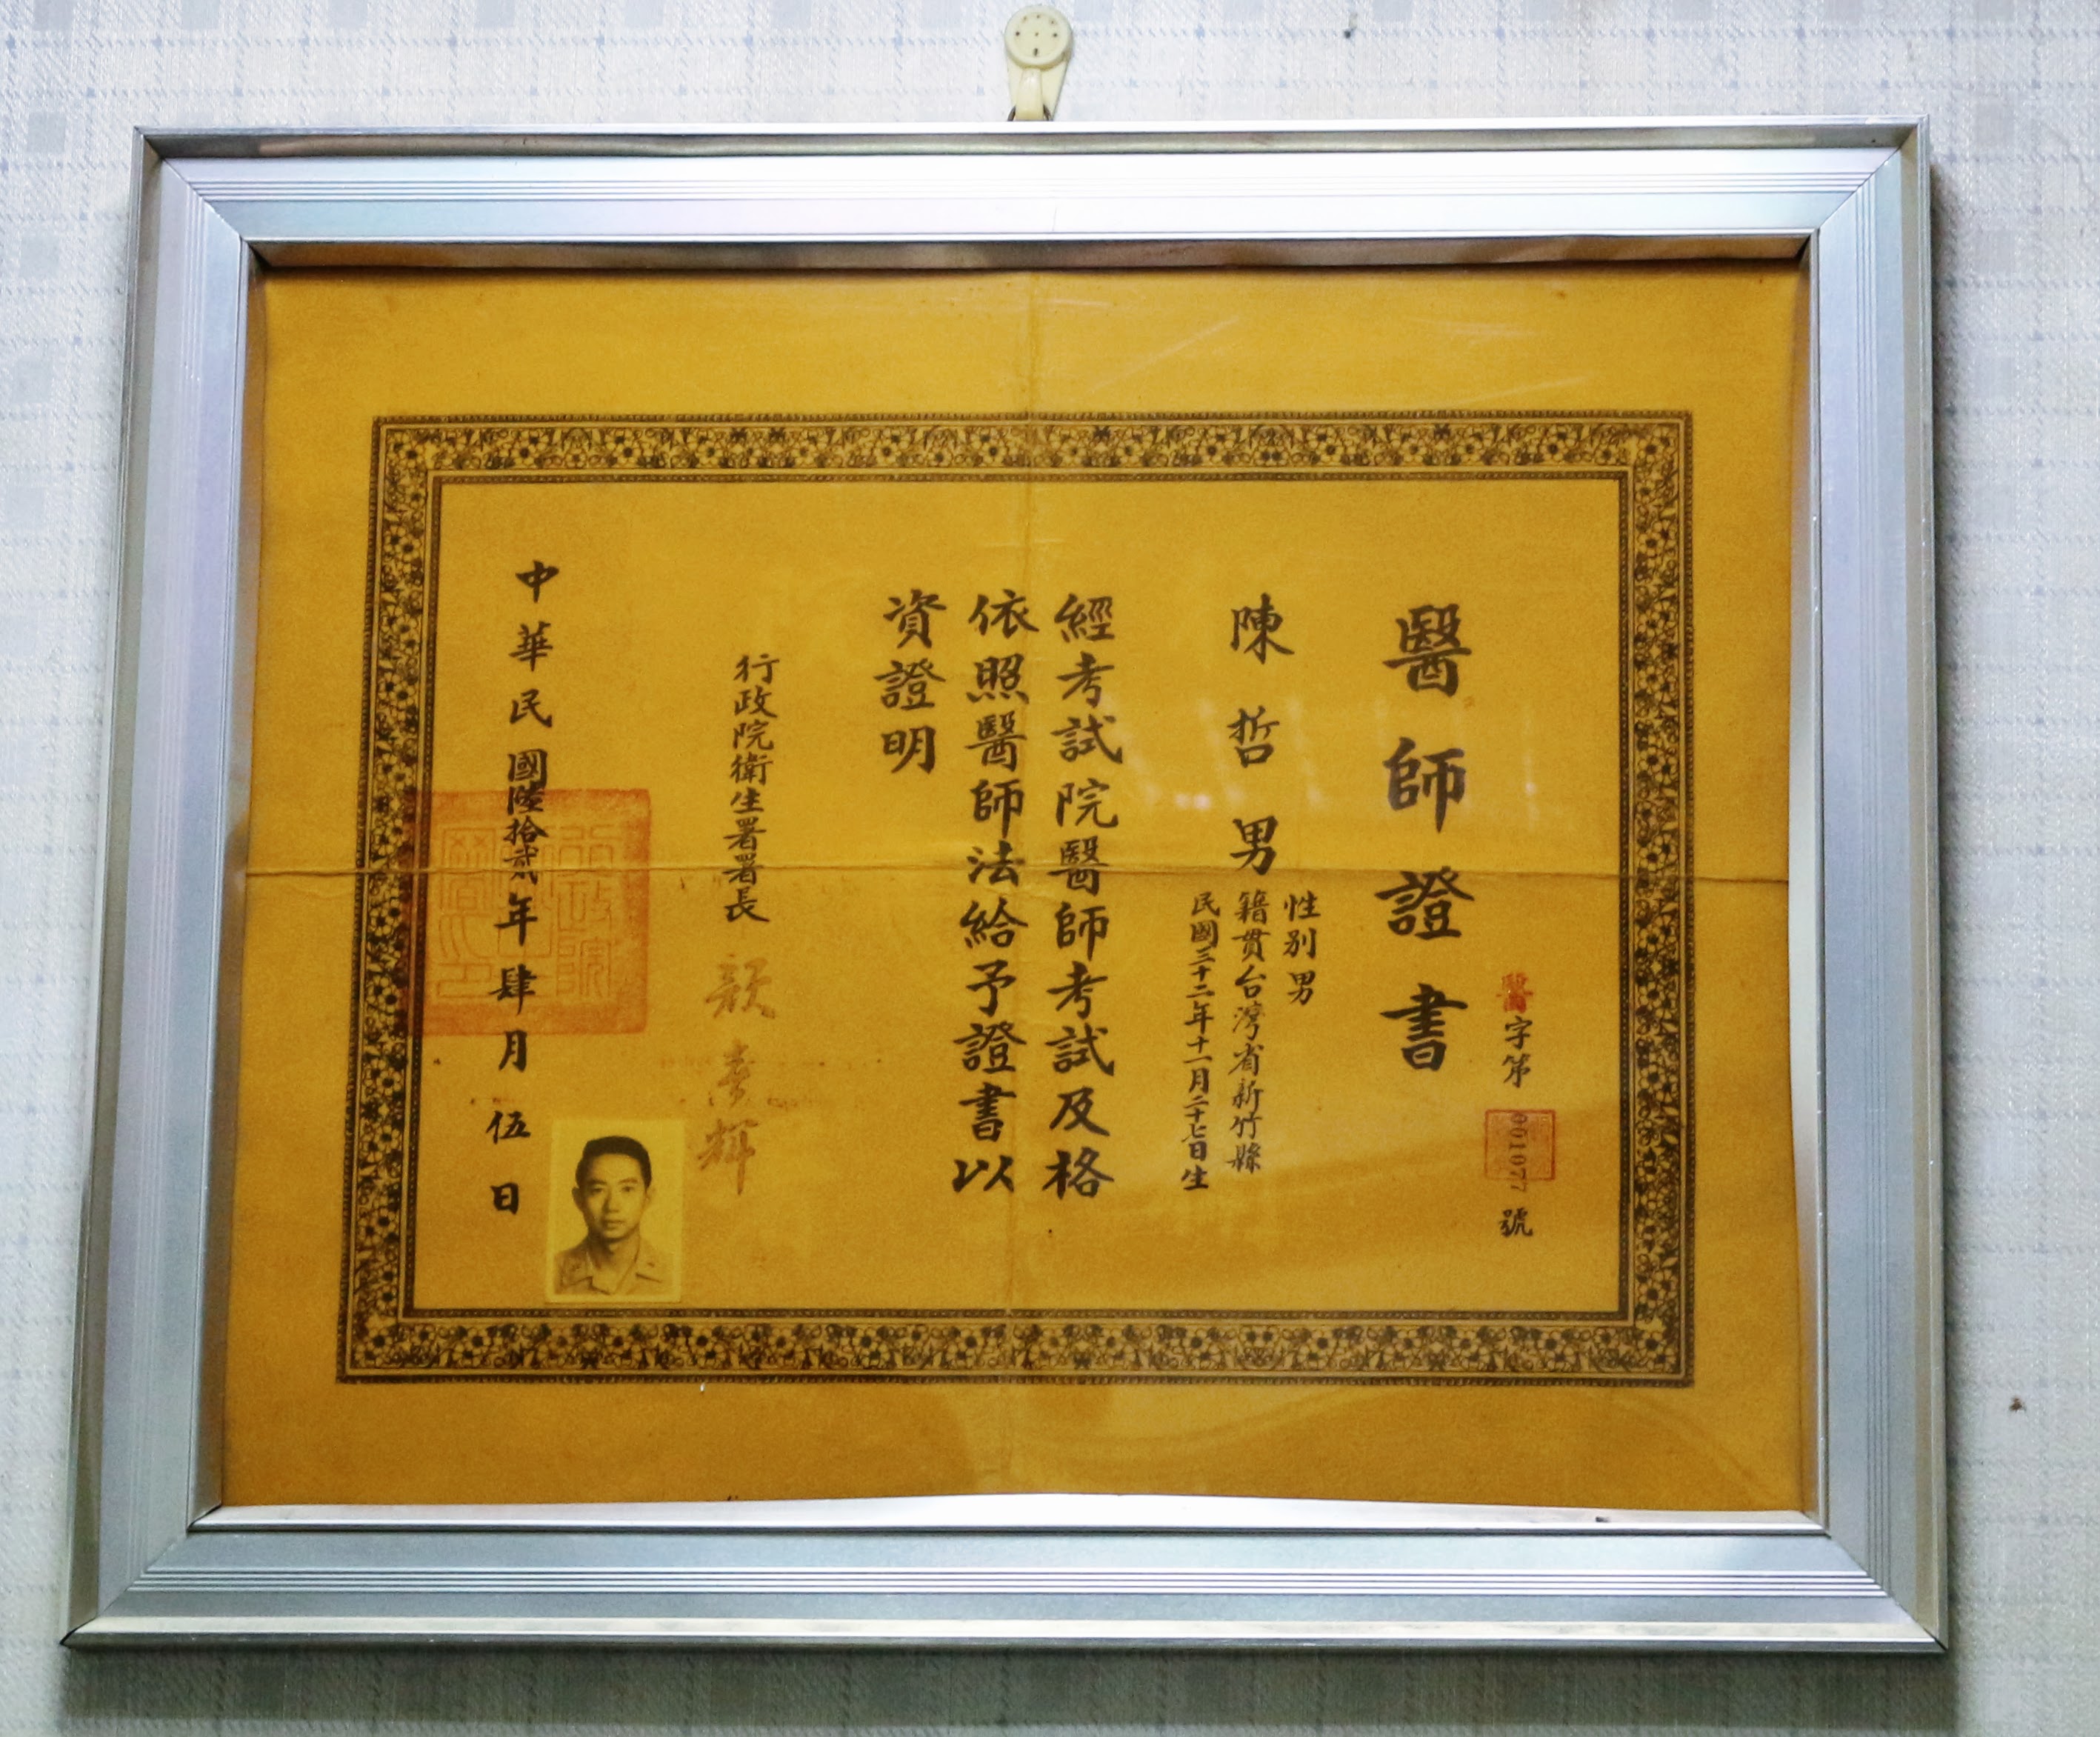 醫字第001077號
醫師證書
陳哲男
性別男
籍貫台灣省新竹縣
民國三十二年十一月二十七日生
經考試院醫師考試及格
依照醫師法給予證書以
資證明
行政院衛生署署長 顏春輝
中華民國陸拾貳年肆月伍日